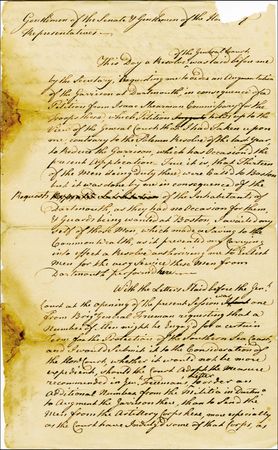 Gentlemen of the Senate & Gentlemen of the House of
Representatives
of the General Court
This Day a Resolve was laid before me
by the Secretary, requesting me to order an Augmentation
of the Garrison at Dartmouth in consequence of a
Petition from Isaac Shearman Commissary for the
troops there which Petition holds up to the
View of the General Court that I had taken upon
me contrary to the Solemn Resolve of the last year
to Reduce the Garrison, which has occasioned the
present Application. True it is, that thirteen
of the Men doing duty there were called to Boston
but it was done by me in consequence of the
Request of the Inhabitants of
Dartmouth, who had no Occasion for them,
& Guards being wanted at Boston I availed my
self of these Men, which made a saving to the
Commonwealth, as it prevented my Carrying
into effect a Resolve authorizing me to Enlist
Men for the very service these Men from
Dartmouth performed here.
With the Letters I laid before the Genl
Court at the opening of the present Session was
one from Brigr General Freeman requesting that a
Number of Men might be Engaged for a certain
Term for the Protection of the Southern Sea Coast,
and I would submit it to the Consideration of
the Honble Court whether it would not be more
expedient, should the Court Adopt the measure
recommended in Genl Freemans Letter to order an
Additional Number from the Militia in Dartmo
to Augment the Garrison there than to send the
Men from the Artillery Corps here, more especially
as the Court have disposed some of that Corps, as